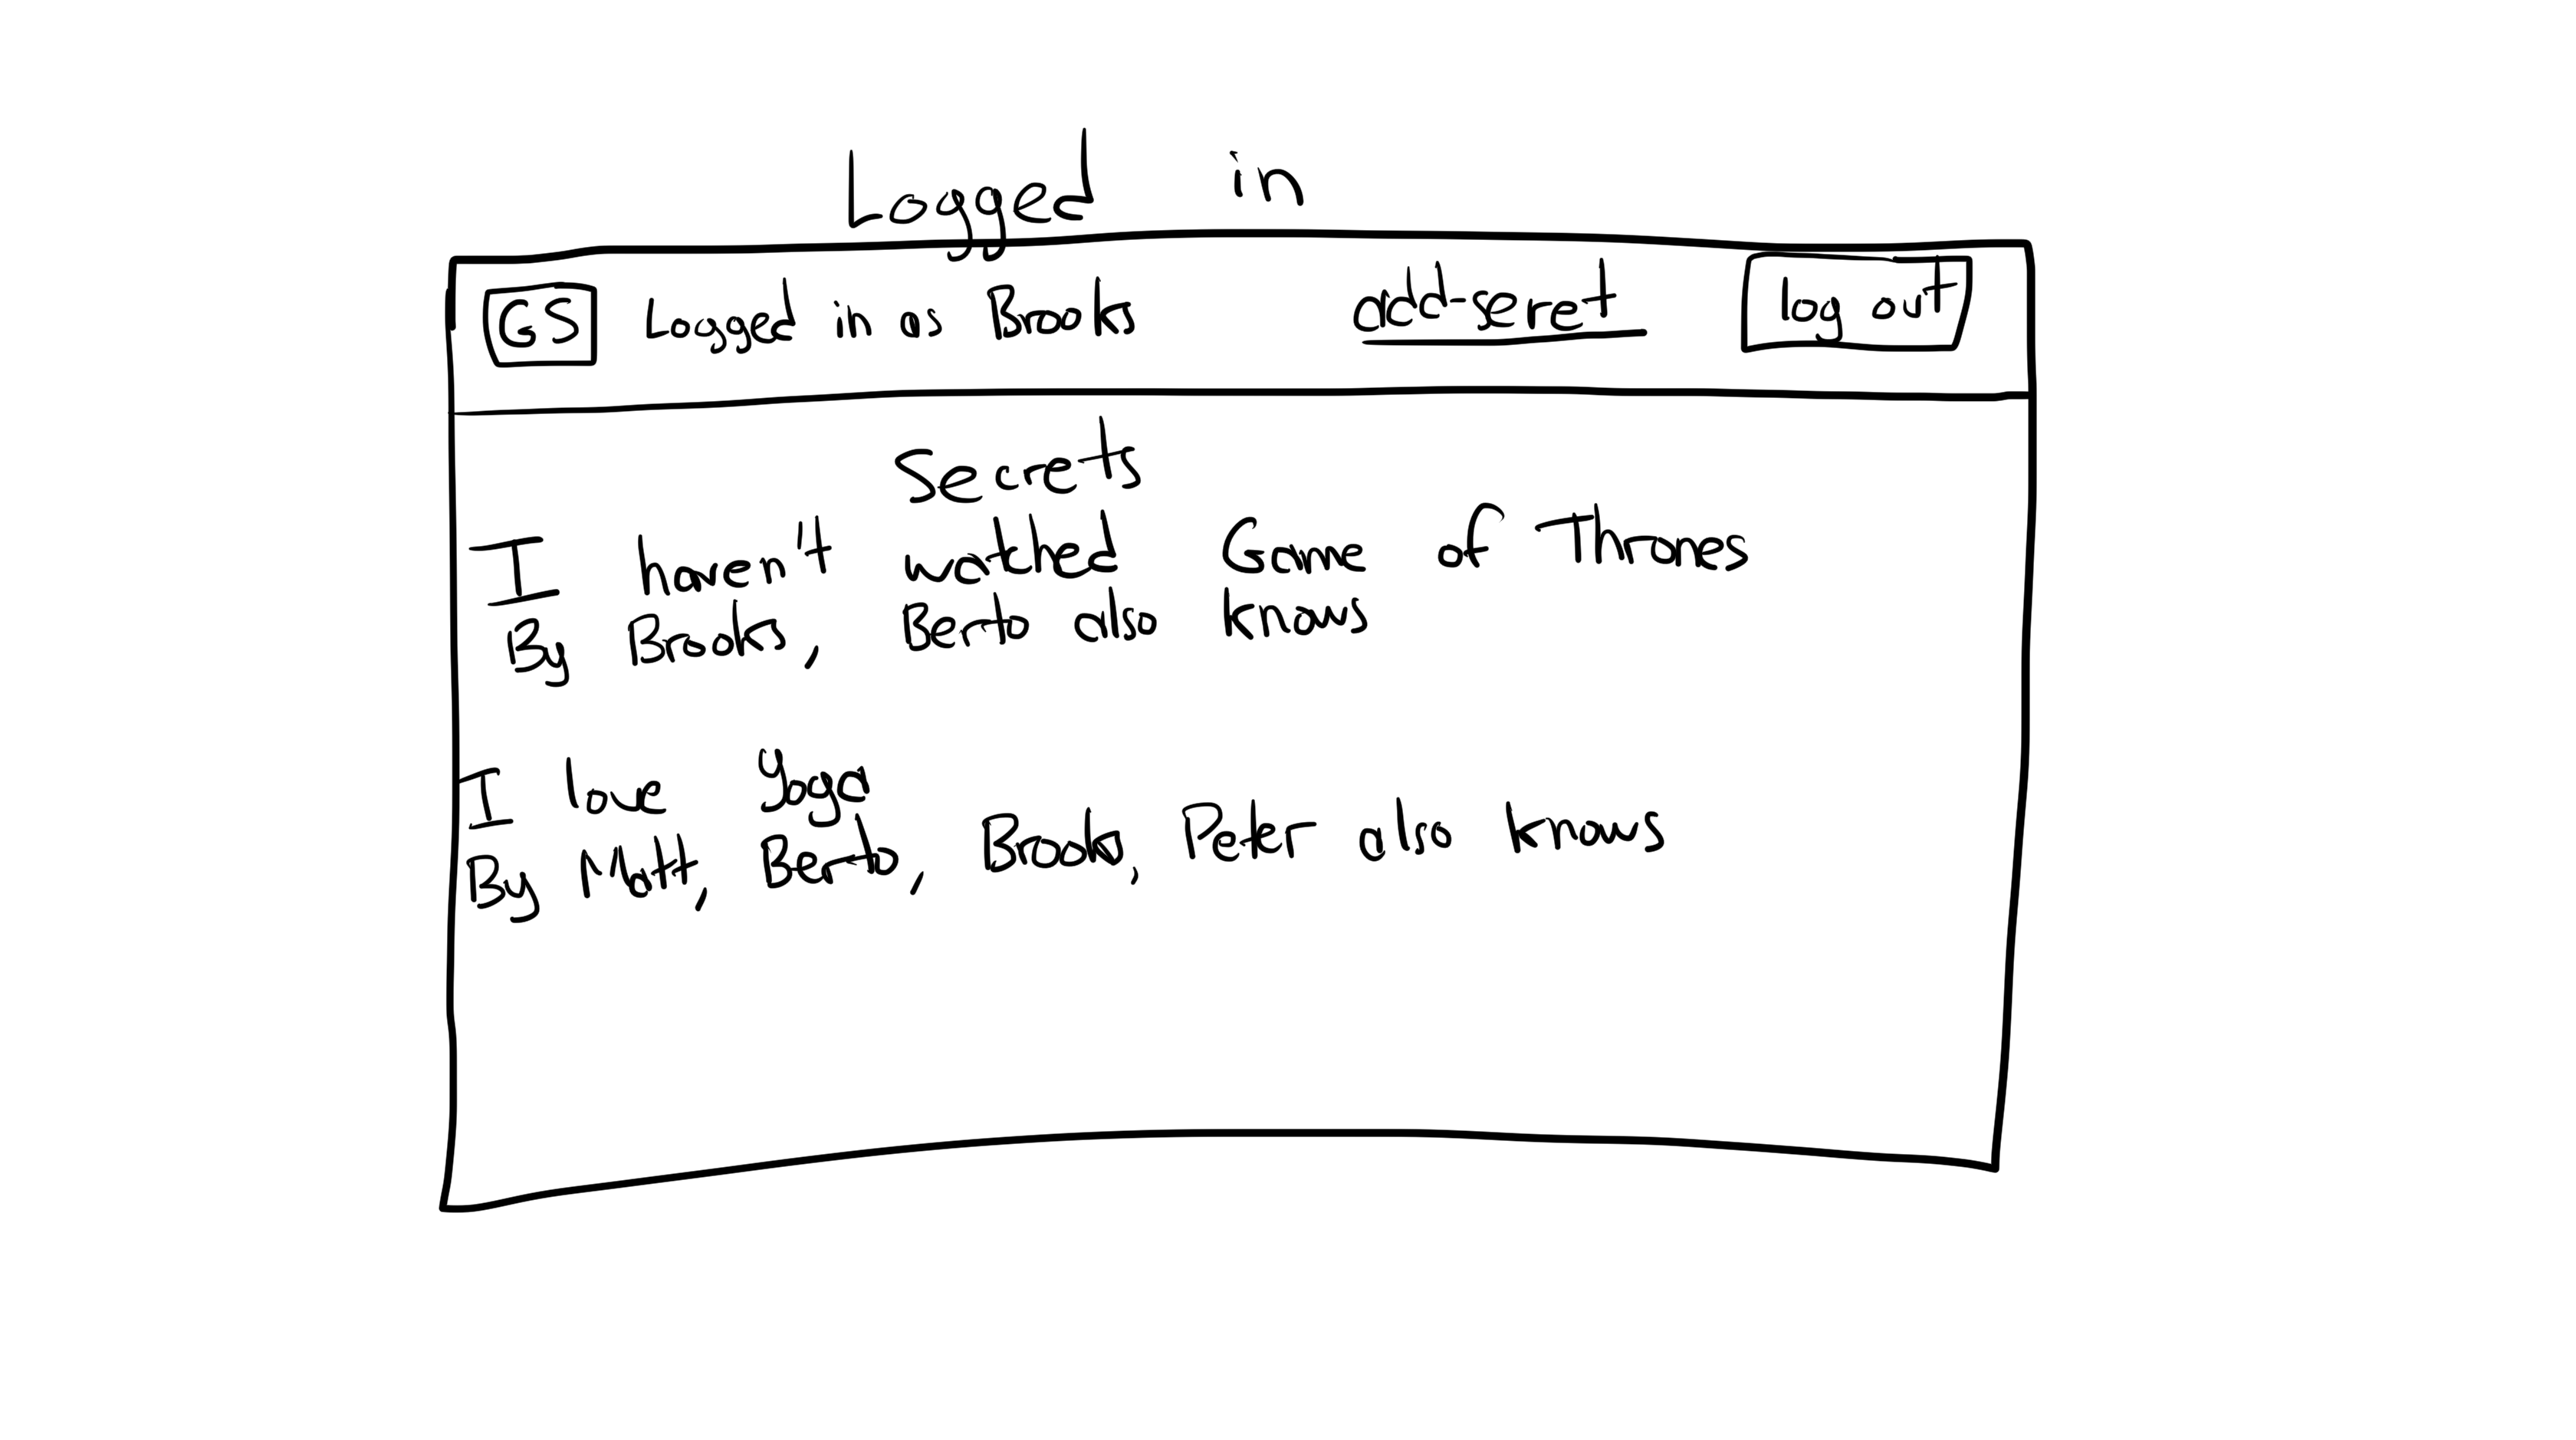 Logged in
GS Logged in as Brooks add-seret log out
Secrets
I haven't watched Game of Thrones
By Brooks, Berto also knows
I love Yoga
By Matt, Berto, Brooks, Peter also knows